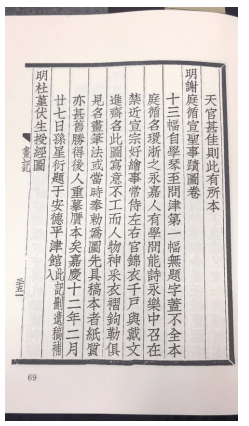 天官甚佳則此有所本
明謝庭循宣聖事蹟圖卷
十三幅自學琴至問津第一幅無題字蓋不全本
庭循名環浙之永嘉人有學問能詩永樂中召在
禁近宣宗好繪事常侍左右官錦衣千戶與戴文
進齊名此圖寫意不工而人物神采衣褶鉤勒俱
見名畫筆法或當時奉勅為圖先具稿本者紙質
亦甚舊勝得後人重摹贗本矣嘉慶十二年二月
廿七日孫星衍題于安德平津館此記刪遺稿補入
明杜菫伏生授經圖
畫記
三五一
69